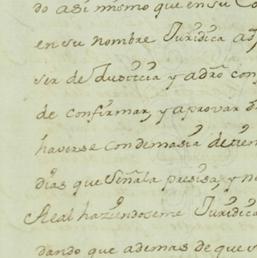 do assi mismo que en su Co
en su nombre Juridica ad
ser de Justicia, y adro con
de confirmar, y aprovar
haverse con demasia de tien
dias que señala presisa, y n
Real haziendoseme Juridica
dando que ademas de que